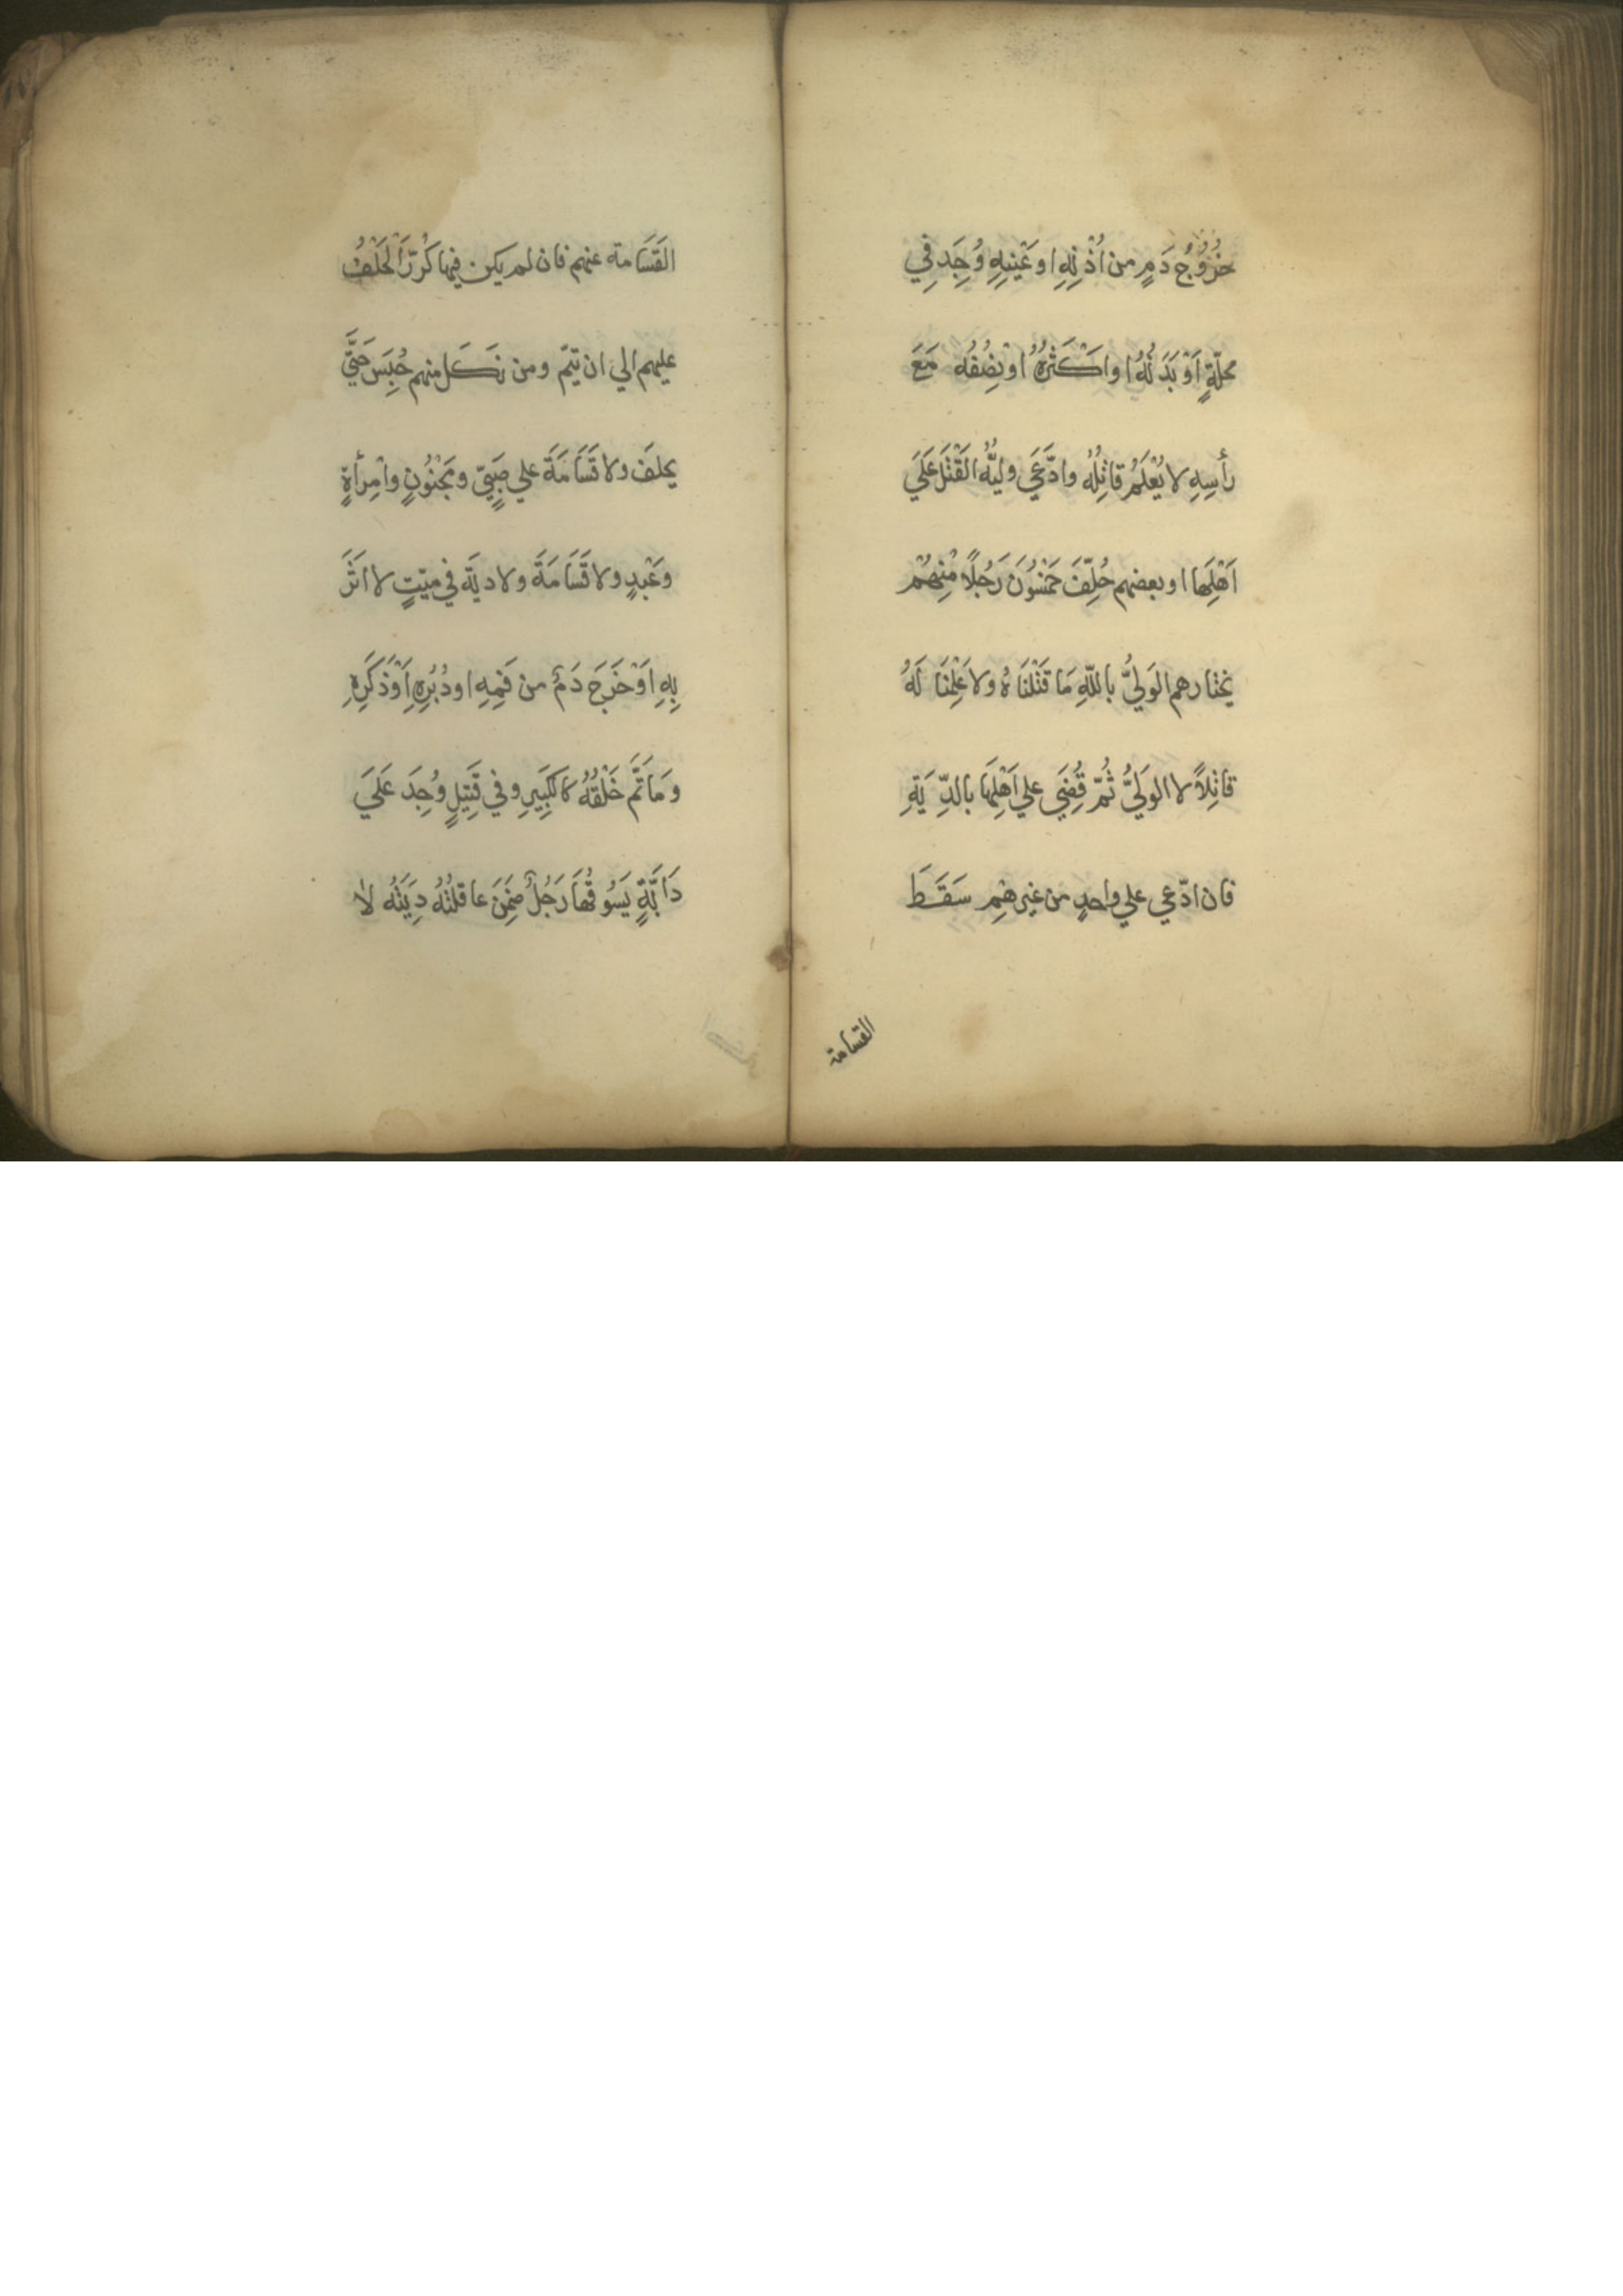 خُرُوْجُ دَمٍ من اُذْنِهِ او عَيْنِهِ وُجِدَ فِي
محلّةٍ اَوْ بَدَنُهُ او اكْثَرُهُ اوْ نِصْفُه مَعَ
رأسِهِ لا يُعْلَمُ قاتِلُهُ وادَّعَي وليُّه القَتْلَ عَلَي
اَهْلِهَا او بعضهم حُلِّفَ خَمْسُوْنَ رَجُلًا مِنْهُمْ
يختارهم الوَليُّ باللّهِ مَا قَتَلْنَاهُ ولا عَلِمْنَا لَهُ
قاتِلاً لا الوَليُّ ثُمّ قُضِيَ علي اَهْلِهَا بالدِّيَةِ
فان ادّعي علي واحدٍ من غيرهِمْ سَقَطَ
القسامة
القَسَامة عنهم فان لم يكن فيها كُرِّرَ الحَلْفُ
عليهم الي ان تيمّ ومن نَكَل منهم حُبِسَ حَتَّي
يحلفَ ولا قَسَامَةَ علي صَبِيٍّ ومَجْنُوْنٍ وامْرأةٍ
وعَبْدٍ ولا قَسَامَةَ ولا ديَةَ في ميّتٍ لا اَثَرَ
بِهِ اَوْ خَرَجَ دَمٌ من فَمِهِ او دُبُرِهِ اَوْ ذَكَرِهِ
وَمَا تَمَّ خَلْقُهُ كالكَبِيرِ وفي قَتِيلٍ وُجِدَ عَلَيَ
دَابَّةٍ يَسُوقُهَا رَجُلٌ ضَمِنَ عاقلتُهُ دِيَتَهُ لا